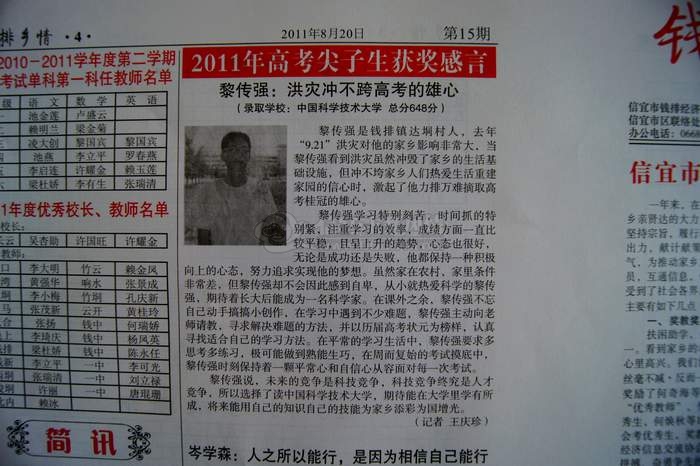 排乡情 · 4 ·
2011年8月20日
第15期
2010－2011学年度第二学期
考试单科第一科任教师名单
级 语文 数学 英语
一 池金莲 卢盛云
二 赖明兰 梁金菊
三 凌大创 黎国宾 黎国宾
四 池燕 李立平 罗春燕
五 李启连 许耀金 赖玉莲
六 梁杜娇 李有生 张瑞清
1年度优秀校长、教师名单
校长：
云 吴杏勋 许国旺 许耀金
教师：
口 李大明 竹云 赖金凤
湾 黄强华 响水 张景成
垌 李小梅 竹垌 孔庆新
马 张茂新 云开 黄桂玲
合 张扬 钱中 何瑞娇
上 李琦庆 钱中 杨风英
排 梁杜娇 钱中 陈永任
新 李立平 一中 李可光
垌 张瑞清 一中 刘立禄
垌 许丽 一中 唐琨珊
内 赖冰
简讯
2011年高考尖子生获奖感言
黎传强：洪灾冲不跨高考的雄心
（录取学校：中国科学技术大学 总分648分）
黎传强是钱排镇达垌村人，去年
“9.21”洪灾对他的家乡影响非常大，当
黎传强看到洪灾虽然冲毁了家乡的生活基
础设施，但冲不垮家乡人们热爱生活重建
家园的信心时，激起了他力排万难摘取高
考桂冠的雄心。
黎传强学习特别刻苦，时间抓的特别
紧，注重学习的效率，成绩方面一直比
较平稳，且呈上升的趋势，心态也很好，
无论是成功还是失败，他都保持一种积极
向上的心态，努力追求实现他的梦想。虽然家在农村，家里条件
非常差，但黎传强却不会因此感到自卑，从小就热爱科学的黎传
强，期待着长大后能成为一名科学家。在课外之余，黎传强不忘
自己动手搞搞小创作，在学习中遇到不少难题，黎传强主动向老
师请教，寻求解决难题的方法，并以历届高考状元为榜样，认真
寻找适合自己的学习方法。在平常的学习生活中，黎传强要求多
思考多练习，极可能做到熟能生巧，在周而复始的考试摸底中，
黎传强时刻保持着一颗平常心和自信心从容面对每一次考试。
黎传强说，未来的竞争是科技竞争，科技竞争终究是人才
竞争，所以选择了读中国科学技术大学，期待能在大学里学有所
成，将来能用自己的知识自己的技能为家乡添彩为国增光。
（记者 王庆珍）
岑学森：人之所以能行，是因为相信自己能行
钱
信宜市钱排经济
信宜市区联络处
办公电话：066
信宜市
一年来，在
乡亲贤达的大力
坚持宗旨，履行
出力，献计献
气，为推动家乡
员，互通信息，
受到了社会各界
主要有如下几点
一、奖教奖
扶困助学，
一。看到家乡的
丝毫不减，反而
奖励了何奇海等
“优秀教师”，
秀教师，何焕秋等
经济信息交流会